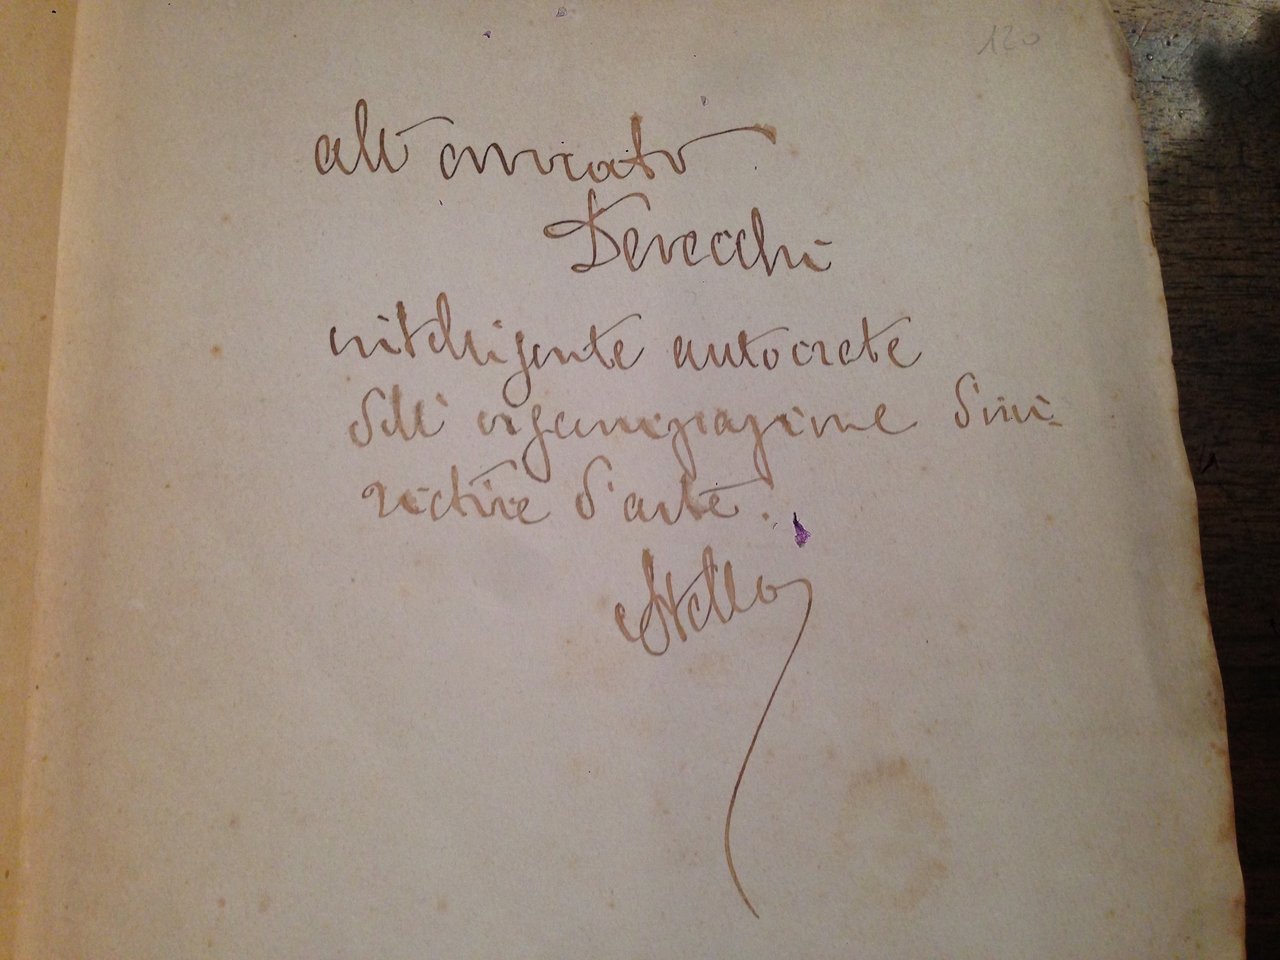 120
all'avvocato
Devecchi
intelligente autocrate
dell'organizzazione d'ini-
ziative d'arte.
Stella